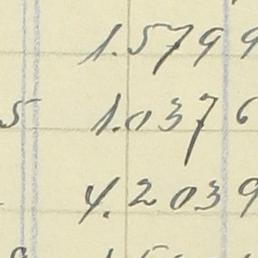 1.5799
5 1.0376
4.2039